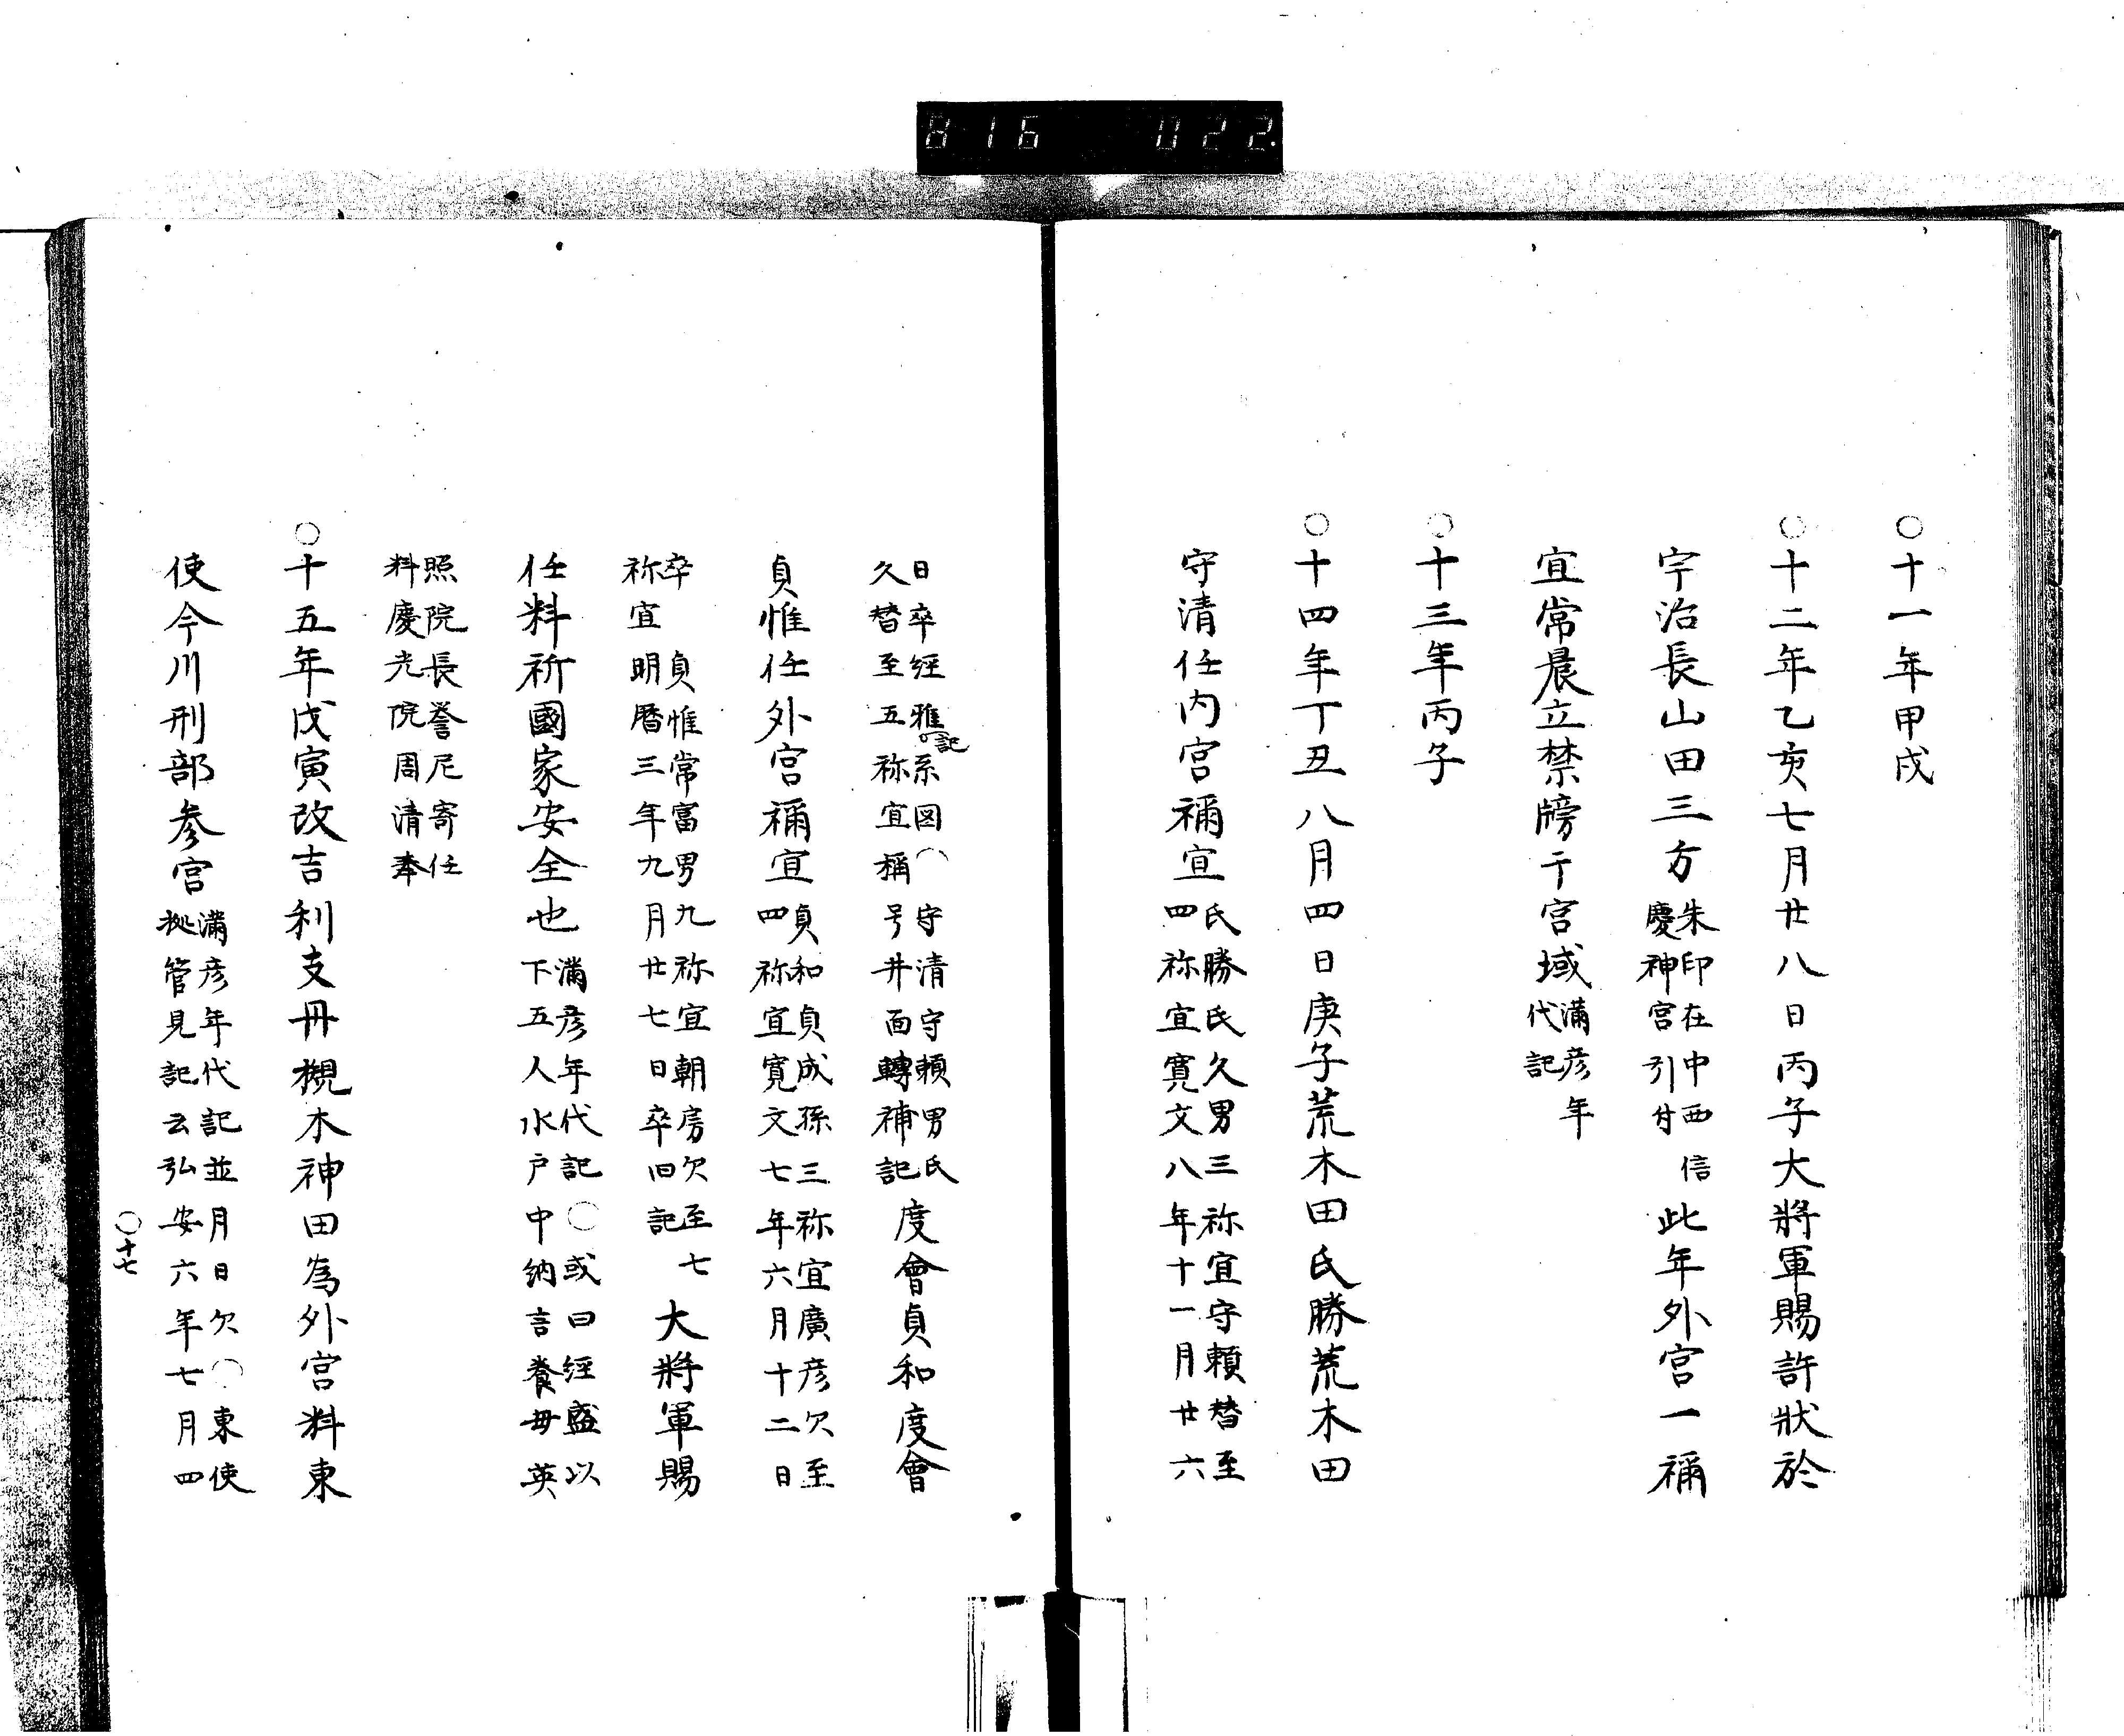 816 022
○十一年甲戌
○十二年乙亥七月廿八日丙子大將軍賜許狀於
宇治長山田三方
朱印在中西信
慶神宮引付
此年外宮一禰
宜常晨立禁牓于宮域
滿彦年
代記
○十三年丙子
○十四年丁丑八月四日庚子荒木田氏勝荒木田
守清任内宮禰宜
氏勝氏久男三祢宜守頼替至
四祢宜寛文八年十一月廿六
日卒經雅記系図○守清守頼男氏
久替至五祢宜稱号井面轉補記
度會貞和度會
貞惟任外宮禰宜
貞和貞成孫三祢宜廣彦欠至
四祢宜寛文七年六月十二日
卒 貞惟常富男九祢宜朝房欠至七
祢宜明暦三年九月廿七日卒旧記
大將軍賜
任料祈國家安全也
滿彦年代記○或曰經盛以
下五人水户中納言養母英
照院長誉尼寄任
料慶光院周清奉
○十五年戊寅改吉利支丹櫬木神田為外宮料東
使今川刑部参宮
滿彦年代記並月日欠○東使
拠管見記云弘安六年七月四
○十七